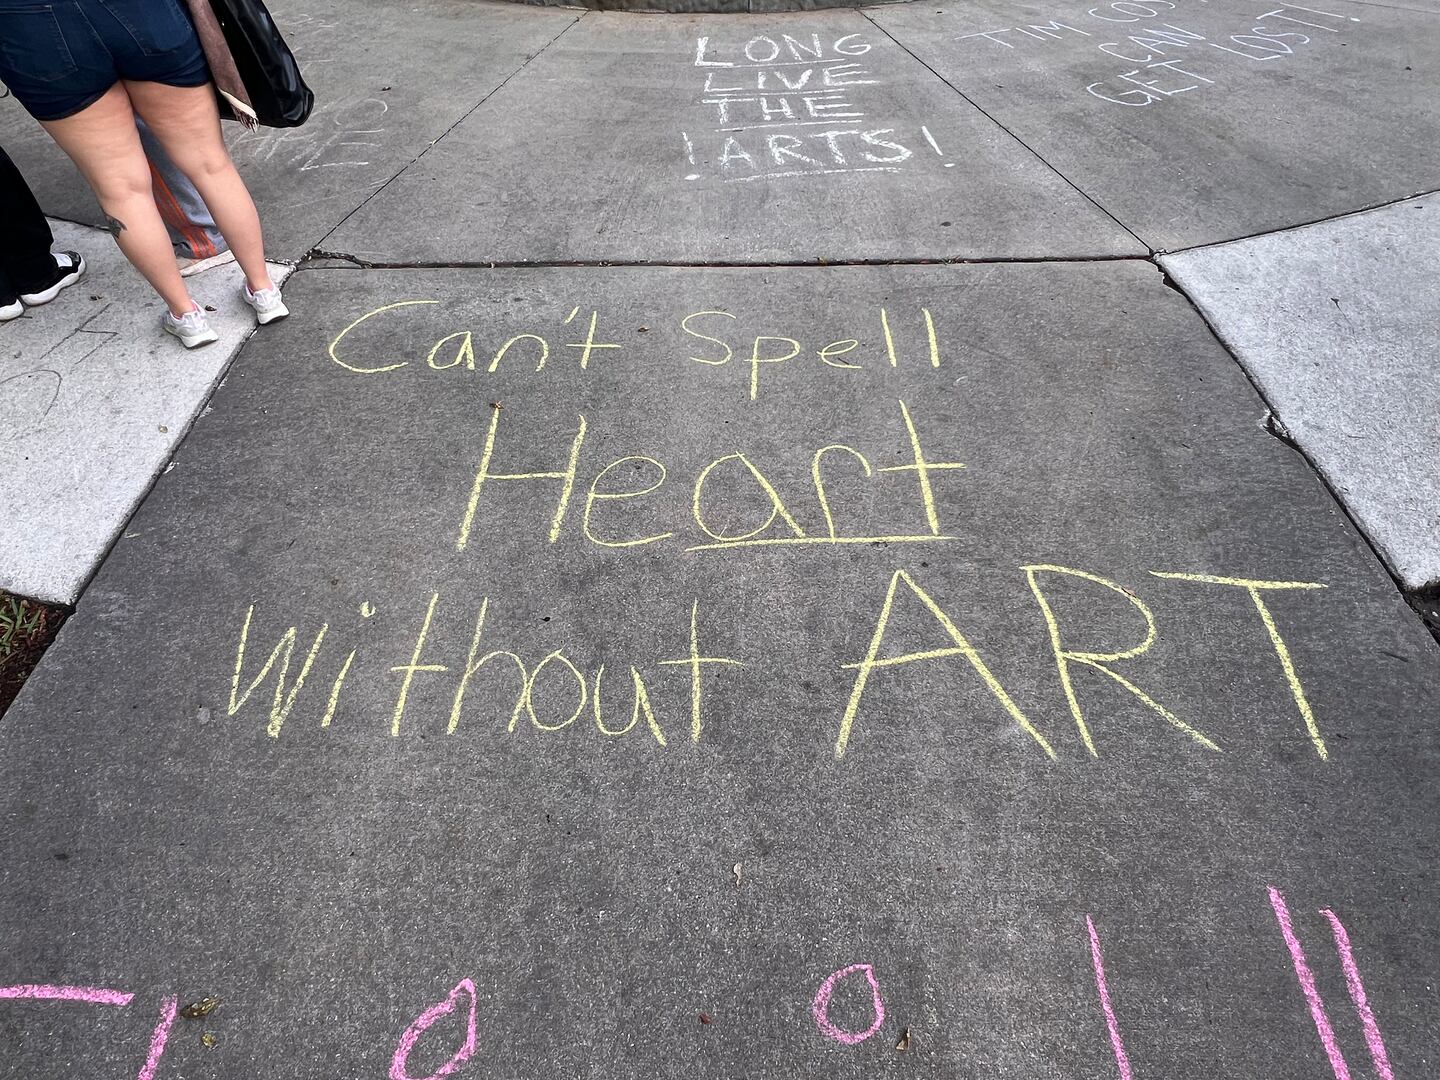 LONG
LIVE
THE
!ARTS!
TIM
CAN
GET LOST!
Can't Spell
Heart
without ART